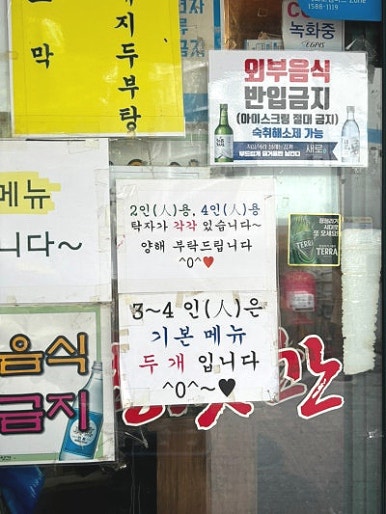 지두부탕
막
녹화중
1588-1119
외부음식
반입금지
(아이스크림 절대 금지)
숙취해소제 가능
새로
메뉴
니다~
2인(人)용, 4인(人)용
탁자가 각각 있습니다~
양해 부탁드립니다
^0^♥
TERRA
TERRA
3~4 인(人)은
기본 메뉴
두 개 입니다
^0^~♥
음식
금지